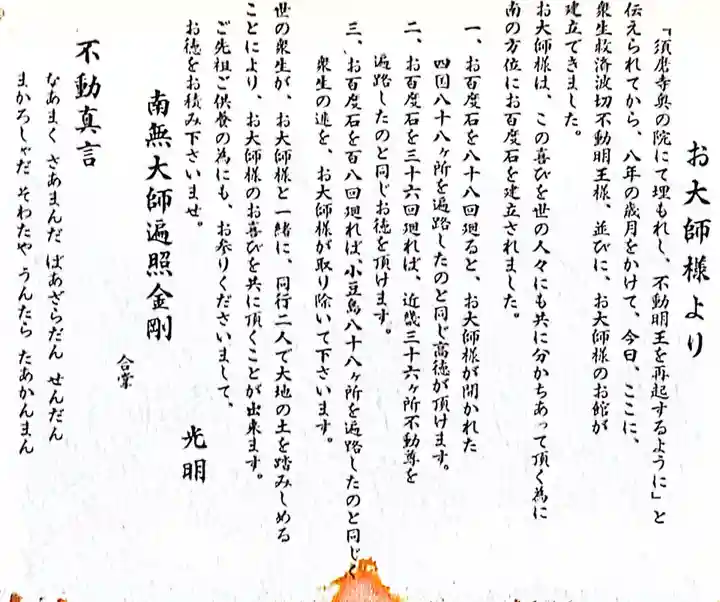 お大師様より
「須磨寺奥の院にて埋もれし、不動明王を再起するように」と
伝えられてから、八年の歳月をかけて、今日、ここに、
衆生救済波切不動明王様、並びに、お大師様のお館が
建立できました。
お大師様は、この喜びを世の人々にも共に分かちあって頂く為に
南の方位にお百度石を建立されました。
一、お百度石を八十八回廻ると、お大師様が開かれた
四国八十八ヶ所を遍路したのと同じ高徳が頂けます。
二、お百度石を三十六回廻れば、近畿三十六ヶ所不動尊を
遍路したのと同じお徳を頂けます。
三、お百度石を百八回廻れば、小豆島八十八ヶ所を遍路したのと同じく
衆生の迷を、お大師様が取り除いて下さいます。
世の衆生が、お大師様と一緒に、同行二人で大地の土を踏みしめる
ことにより、お大師様のお喜びを共に頂くことが出来ます。
ご先祖ご供養の為にも、お参りくださいまして、
お徳をお積み下さいませ。
光明
南無大師遍照金剛
合掌
不動真言
なあまく さあまんだ ばあざらだん せんだん
まかろしゃだ そわたや うんたら たあかんまん